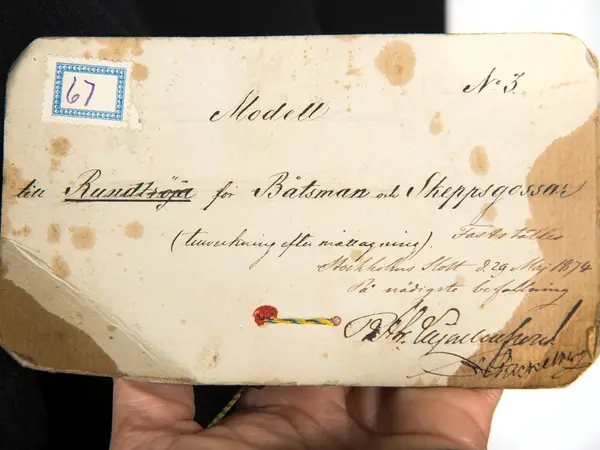 67
No 3.
Modell
till Rundtröja för Båtsman och Skeppsgossar
(tillverkning efter måttagning).
Fastställes
Stockholms Slott d. 29 Maj 1874
På nådigste befallning